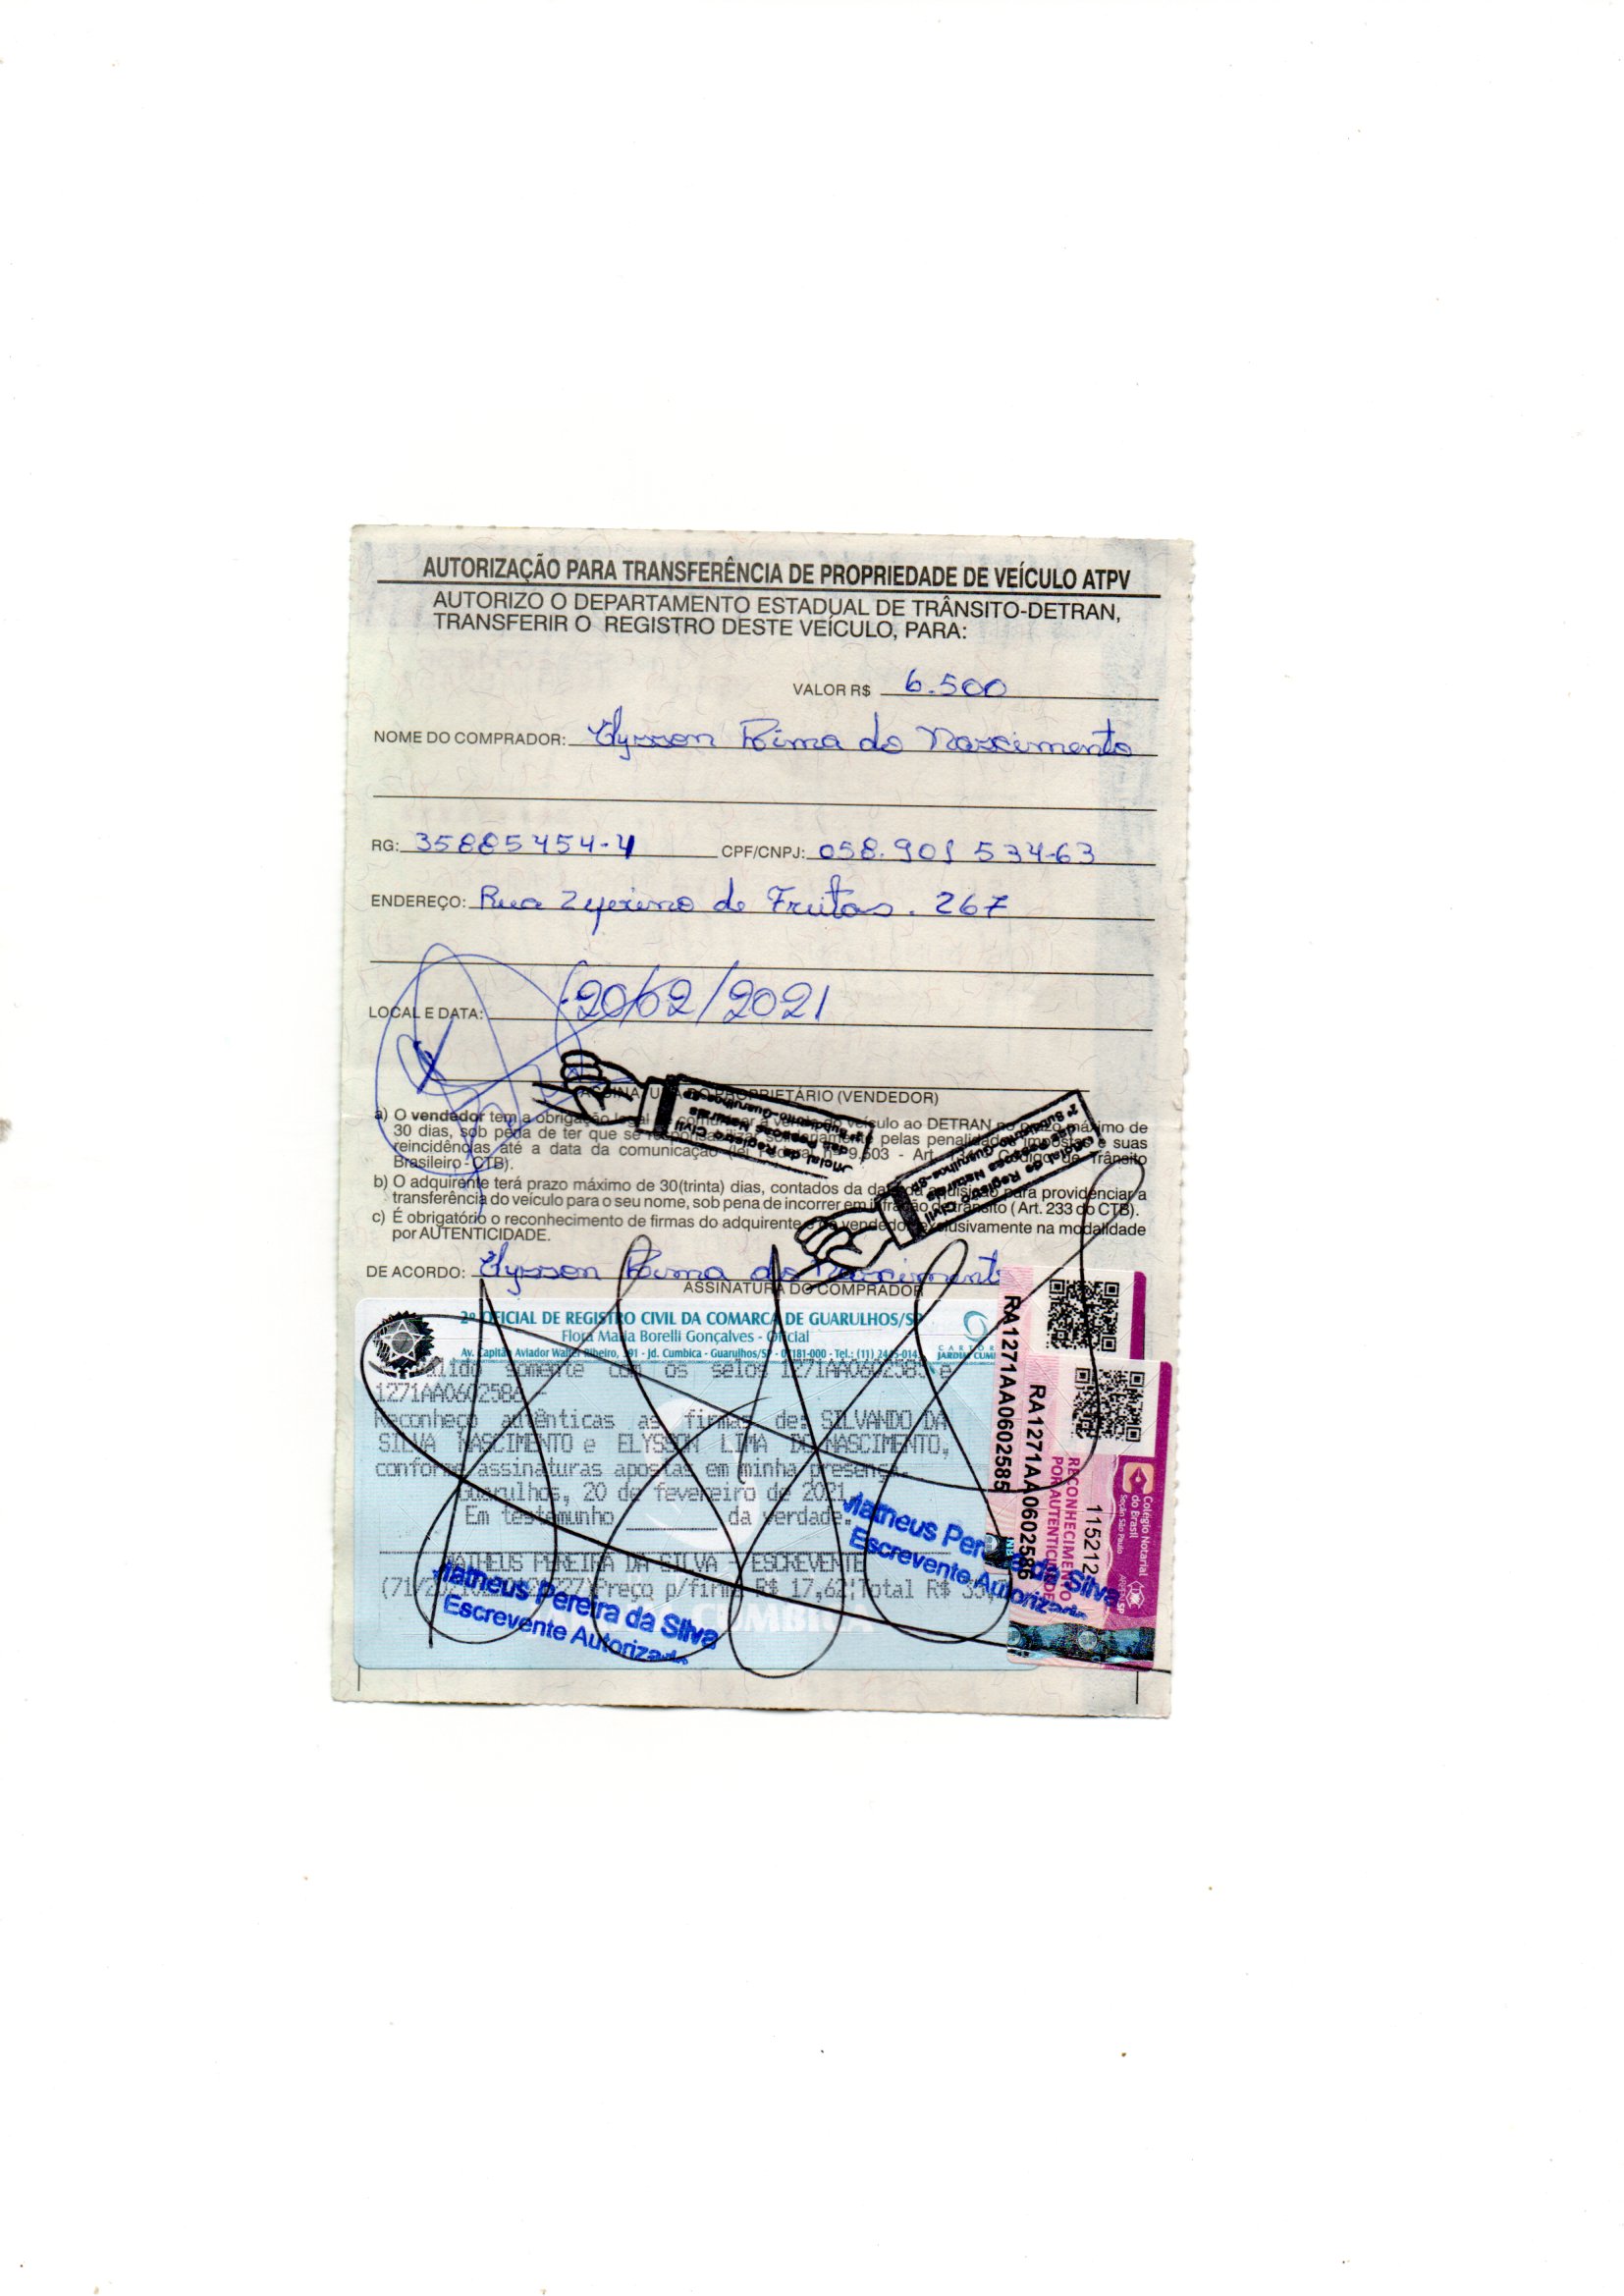 AUTORIZAÇÃO PARA TRANSFERÊNCIA DE PROPRIEDADE DE VEÍCULO ATPV
AUTORIZO O DEPARTAMENTO ESTADUAL DE TRÂNSITO-DETRAN,
TRANSFERIR O REGISTRO DESTE VEÍCULO, PARA:
VALOR R$ 6.500
NOME DO COMPRADOR: Elysson Lima do Nascimento
RG: 35885454-4 CPF/CNPJ: 058.901 534-63
ENDEREÇO: Rua de Freitas. 267
LOCAL E DATA: 20/02/2021
ASSINATURA DO PROPRIETÁRIO (VENDEDOR)
a) O vendedor tem a obrigação legal de comunicar a venda do veículo ao DETRAN no prazo máximo de
30 dias, sob pena de ter que se responsabilizar solidariamente pelas penalidades impostas e suas
reincidências até a data da comunicação (lei Federal nº 9.503 - Art. 134 - Código de Trânsito
Brasileiro - CTB).
b) O adquirente terá prazo máximo de 30(trinta) dias, contados da data da aquisição para providenciar a
transferência do veículo para o seu nome, sob pena de incorrer em infração de trânsito (Art. 233 do CTB).
c) É obrigatório o reconhecimento de firmas do adquirente e do vendedor, exclusivamente na modalidade
por AUTENTICIDADE.
Oficial de Registro Civil
das Pessoas Naturais
2º Subdistrito-Guarulhos-SP
Oficial de Registro Civil
das Pessoas Naturais
2º Subdistrito-Guarulhos-SP
DE ACORDO: Elysson Lima do Nascimento
ASSINATURA DO COMPRADOR
2º OFICIAL DE REGISTRO CIVIL DA COMARCA DE GUARULHOS/SP
Flora Maria Borelli Gonçalves - Oficial
Av. Capitão Aviador Walter Ribeiro, 391 - Jd. Cumbica - Guarulhos/SP - 07181-000 - Tel.: (11)
Válido somente com os selos 1271AA0602585 e
1271AA0602586
Reconheço autênticas as firmas de: SILVANDO DA
SILVA NASCIMENTO e ELYSSON LIMA DO NASCIMENTO,
conforme assinaturas apostas em minha presença.
Guarulhos, 20 de fevereiro de 2021
Em testemunho ________ da verdade.
MATHEUS PEREIRA DA SILVA - ESCREVENTE
Preço p/firma R$ 17,62 Total R$
CUMBICA
Matheus Pereira da Silva
Escrevente Autorizado
Matheus Pereira da Silva
Escrevente Autorizado
RA1271AA0602585
RA1271AA0602586
RECONHECIMENTO
POR AUTENTICIDADE
115212
Colégio Notarial
do Brasil
Seção São Paulo